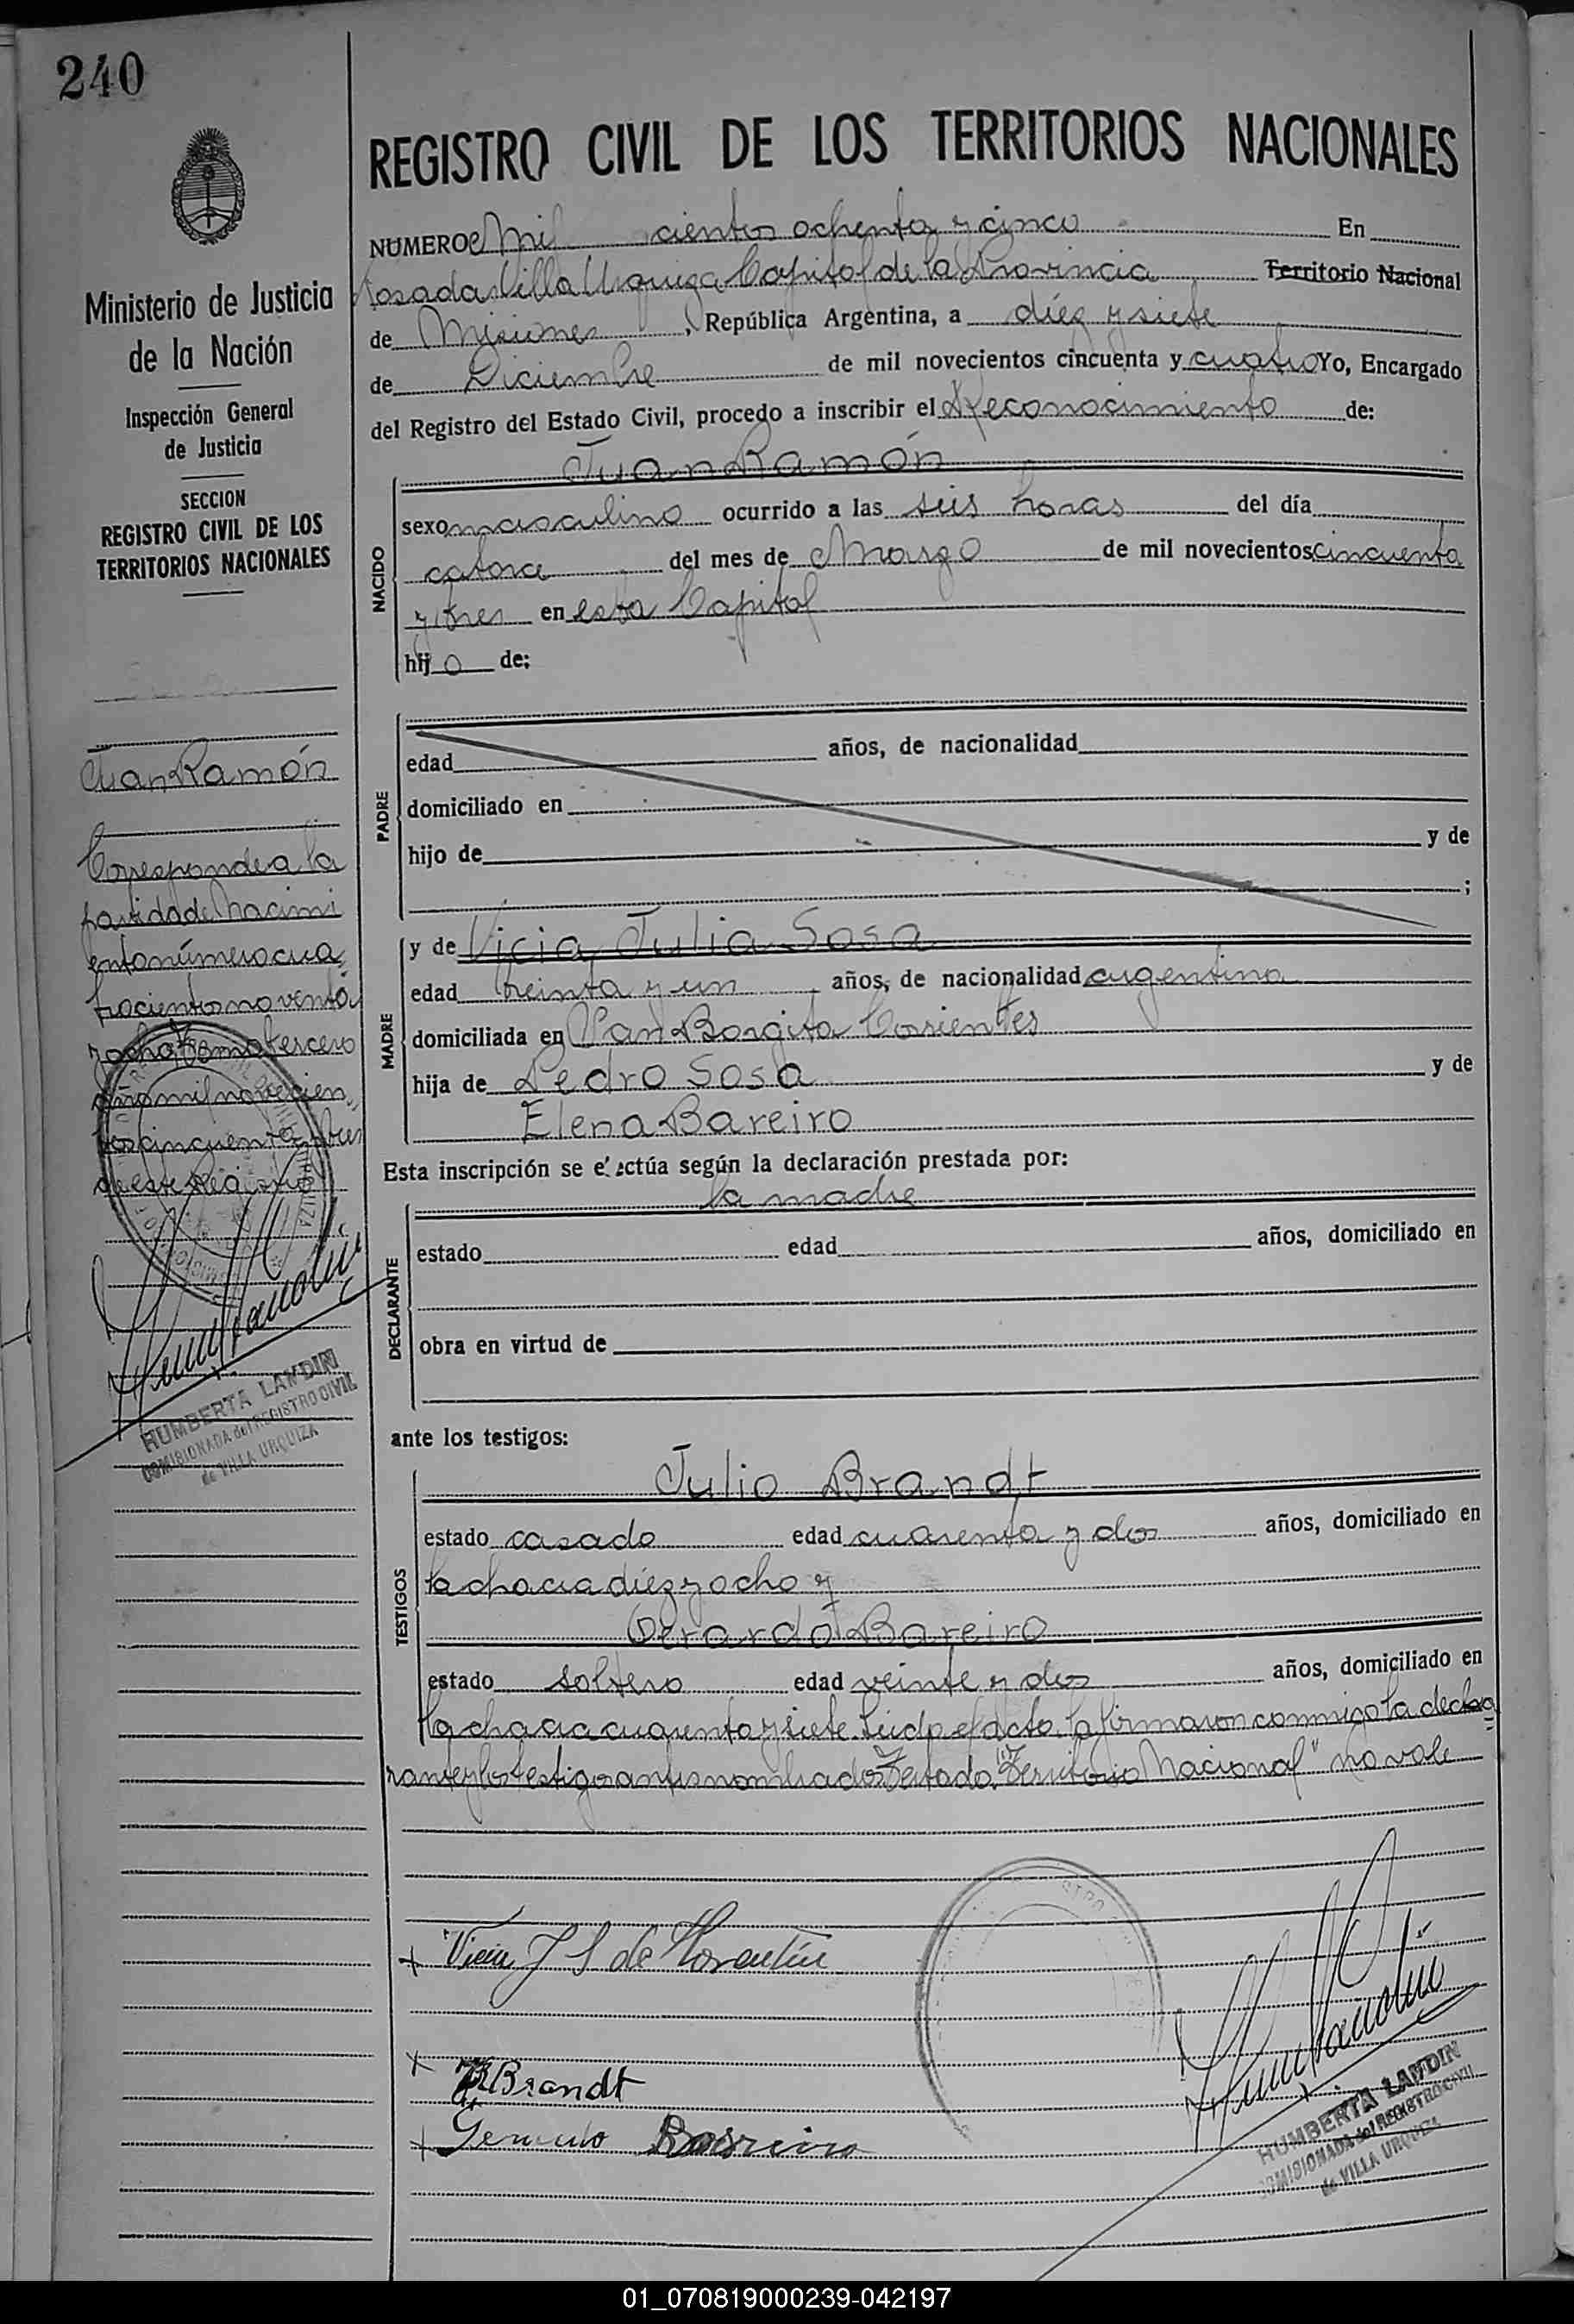 240
Ministerio de Justicia
de la Nación
Inspección General
de Justicia
SECCION
REGISTRO CIVIL DE LOS
TERRITORIOS NACIONALES
Juan Ramón
Corresponde a la
partida de Nacimi
ento número cua
trocientos noventa
y ocho Tomo tercero
año mil novecien
tos cincuenta y tres
de este Registro
HUMBERTA LANDIN
COMISIONADA del REGISTRO CIVIL
de VILLA URQUIZA
REGISTRO CIVIL DE LOS TERRITORIOS NACIONALES
NUMERO Mil cientos ochenta y cinco En
Posadas Villa Urquiza Capital de la Provincia Territorio Nacional
de Misiones, República Argentina, a diez y siete
de Diciembre de mil novecientos cincuenta y cuatro Yo, Encargado
del Registro del Estado Civil, procedo a inscribir el Reconocimiento de:
Juan Ramón
NACIDO
sexo masculino ocurrido a las seis horas del día
catorce del mes de Marzo de mil novecientos cincuenta
y tres en esta Capital
hijo de:
PADRE
edad años, de nacionalidad
domiciliado en
hijo de y de
;
MADRE
y de Vicia Julia Sosa
edad treinta y un años, de nacionalidad argentina
domiciliada en San Borgita Corrientes
hija de Pedro Sosa y de
Elena Bareiro
Esta inscripción se efectúa según la declaración prestada por:
la madre
DECLARANTE
estado edad años, domiciliado en
obra en virtud de
ante los testigos:
TESTIGOS
Julio Brandt
estado casado edad cuarenta y dos años, domiciliado en
la chacra diez y ocho y
Gerardo Bareiro
estado soltero edad veinte y dos años, domiciliado en
la chacra cuarenta y siete. Leída el acta, la firmaron conmigo la decla
rante y los testigos antes nombrados. Testado: "Territorio Nacional" no vale
Vicia J S de Florentín
Brandt
Gerardo Barreiro
HUMBERTA LANDIN
COMISIONADA del REGISTRO CIVIL
de VILLA URQUIZA
01_070819000239-042197